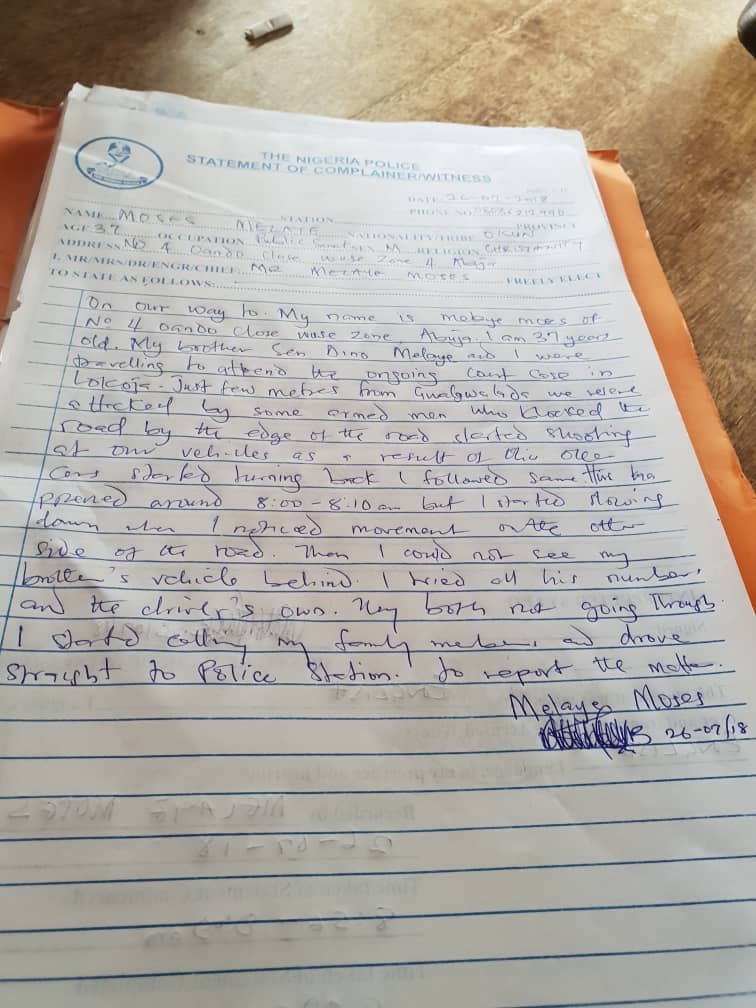 THE NIGERIA POLICE
STATEMENT OF COMPLAINER/WITNESS
DATE 26-07-2018
PHONE NO
NAME MOSES MELAYE STATION PROVINCE
AGE 37 OCCUPATION Public Servant SEX M NATIONALITY/TRIBE OKUN RELIGION CHRISTIANITY
ADDRESS No 4 Oando Close wuse Zone 4 Abuja
I, MR/MRS/DR/ENGR/CHIEF. MR MELAYE MOSES FREELY ELECT
TO STATE AS FOLLOWS:
On our way to. My name is melaye moses of
No 4 Oando Close wuse Zone, Abuja. I am 37 years
old. My brother Sen Dino Melaye and I were
travelling to attend the ongoing court case in
Lokoja. Just few metres from Gwagwalada we were
attacked by some armed men who blocked the
road by the edge of the road started shooting
at our vehicles as a result of this other
Cars started turning back I followed same. This ha
ppened around 8:00-8:10am but I started slowing
down when I noticed movement on the other
side of the road. Then I could not see my
brother's vehicle behind. I tried all his numbers
and the driver's own. They both not going through.
I started calling my family members and drove
straight to Police Station. to report the matter.
Melaye Moses
26-07/18